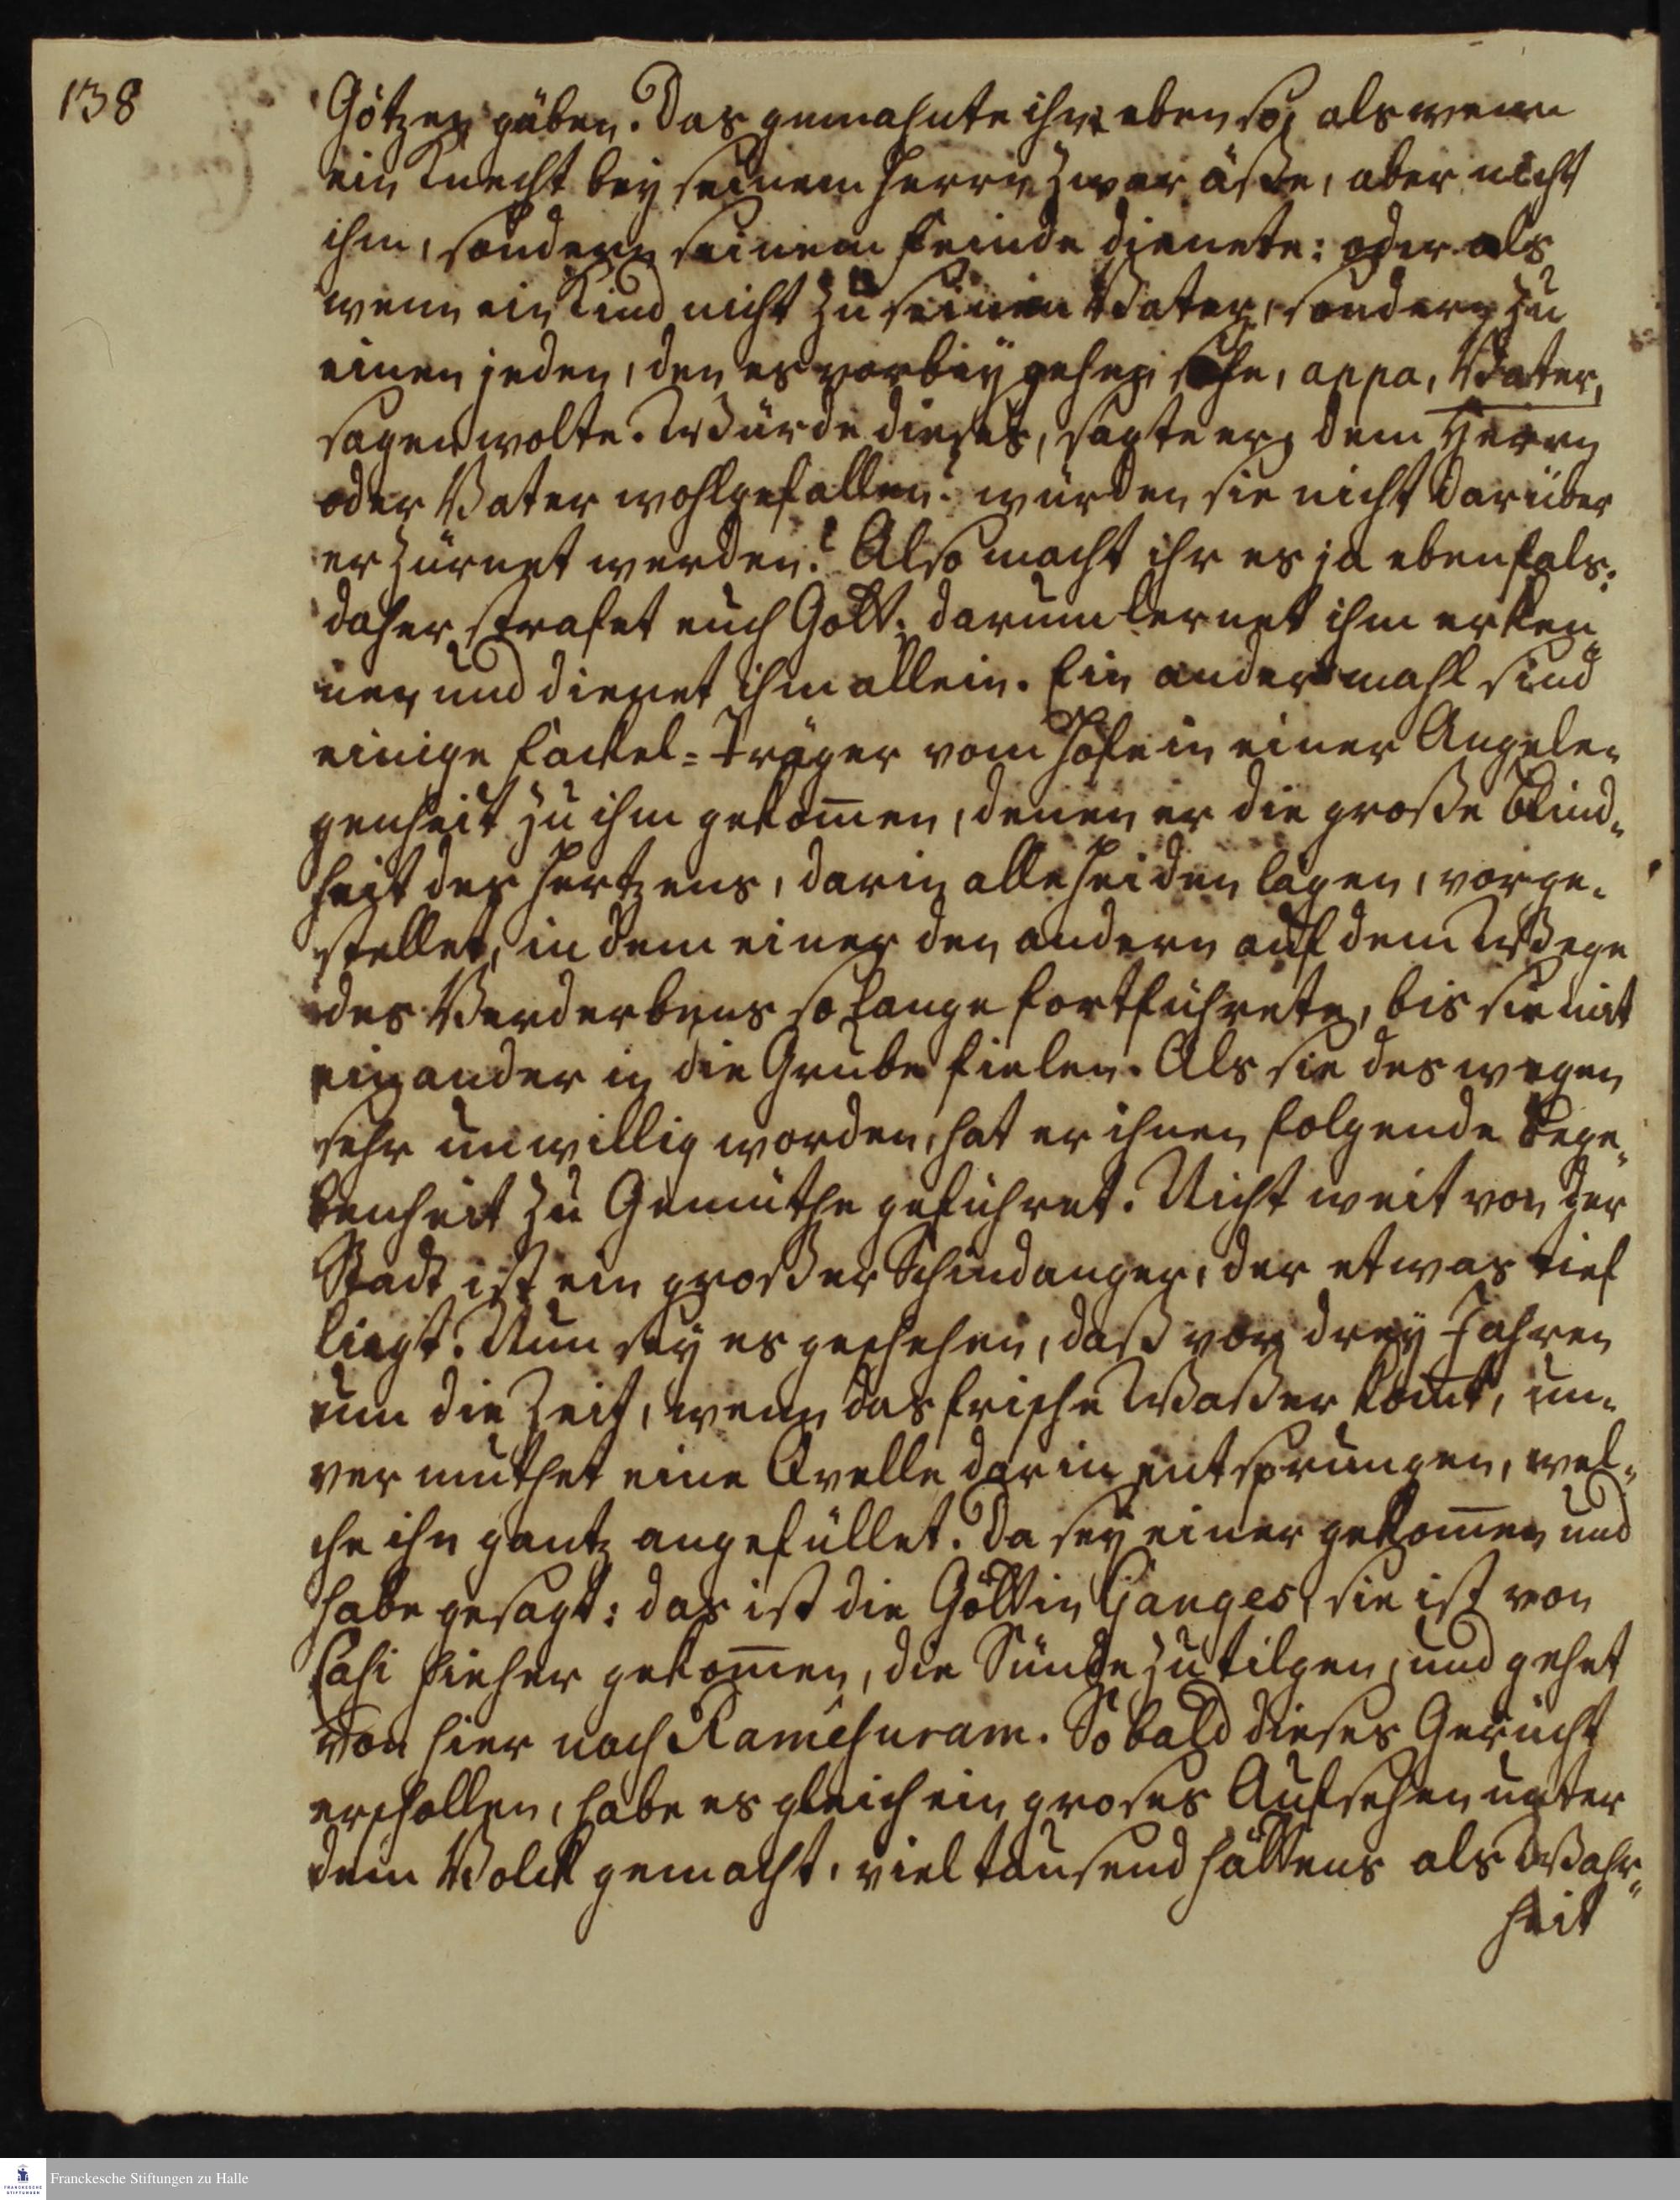 138
Götzen gäben. Das gemahnte ihn eben so, als wenn
ein Knecht bey seinem Herrn zwar äße, aber nicht
ihm, sondern seinem Feinde dienete: oder als
wenn ein Kind nicht zu seinem Vater, sondern zu
einen jeden, den es vorbey gehen sehe, appa, Vater,
sagen wolte. Würde dieses, sagte er, dem Herrn
oder Vater wohlgefallen? würden sie nicht darüber
erzürnet werden? Also macht ihr es ja ebenfals:
daher strafet euch Gott. darum lernet ihm erken„
nen und dienet ihm allein. Ein andermahl sind
einige Fackel-Träger vom Hofe in einer Angele„
genheit zu ihm gekom̄en, denen er die große Blind„
heit des Hertzens, darin alle Heiden lägen, vorge„
stellet, in dem einer den andern auf dem Wege
des Verderbens so lange fortführete, bis sie mit
einander in die Grube fielen. Als sie deswegen
sehr unwillig worden, hat er ihnen folgende Bege„
benheit zu Gemüthe geführet. Nicht weit von der
Stadt ist ein großer Schindanger, der etwas tief
liegt. Nun sey es geschehen, daß vor drey Jahren
um die Zeit, wenn das frische Waßer kom̄t, un„
vermuthet eine Qvelle darin entsprungen, wel„
che ihn gantz angefüllet. Da sey einer gekom̄en und
habe gesagt: das ist die Göttin Ganges, sie ist von
Casi hieher gekom̄en, die Sünde zu tilgen, und gehet
von hier nach Ramesuram. So bald dieses Gerücht
erschollen, habe es gleich ein groses Aufsehen unter
dem Volck gemacht. viel tausend hättens als Wahr„
heit
Franckesche Stiftungen zu Halle